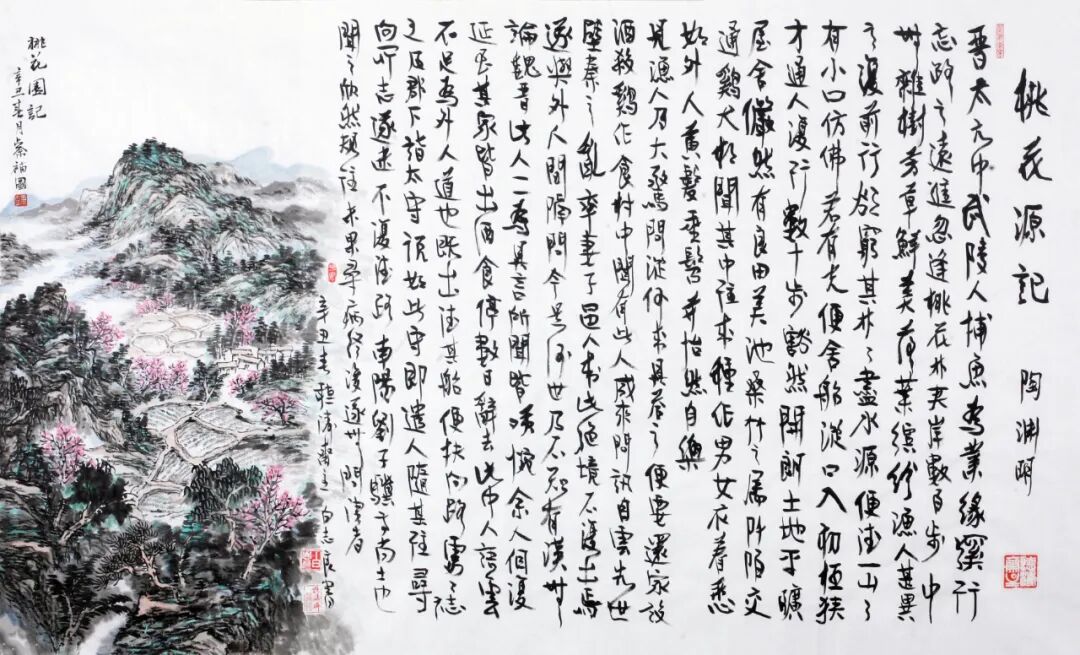 桃花源記 陶淵明
晋太元中武陵人捕魚為業緣溪行
忘路之遠進忽逢桃花林夾岸數百步中
無雜樹芳草鮮美落英繽紛漁人甚異
之復前行欲窮其林々盡水源便得一山々
有小口仿佛若有光便舍船從口入初極狹
才通人復行數十步豁然開朗土地平曠
屋舍儼然有良田美池桑竹之屬阡陌交
通鷄犬相聞其中往來種作男女衣着悉
如外人黃髮垂髫并怡然自樂
見漁人乃大驚問從何來具答之便要還家設
酒殺鷄作食村中聞有此人咸來問訊自雲先世
避秦之亂率妻子邑人來此絕境不復出焉
遂與外人間隔問今是何世乃不知有漢無
論魏晉此人一一為具言所聞皆嘆惋余人個復
延至其家皆出酒食停數日辭去此中人語雲
不足為外人道也既出得其船便扶向路處々誌
之及郡下詣太守說如此守即遣人隨其往尋
向所志遂迷不復得路南陽劉子驥高尚士也
聞之欣然規往未果尋病終後遂無問津者
辛丑春聽濤齋主白志良書
桃花園記
辛丑春月